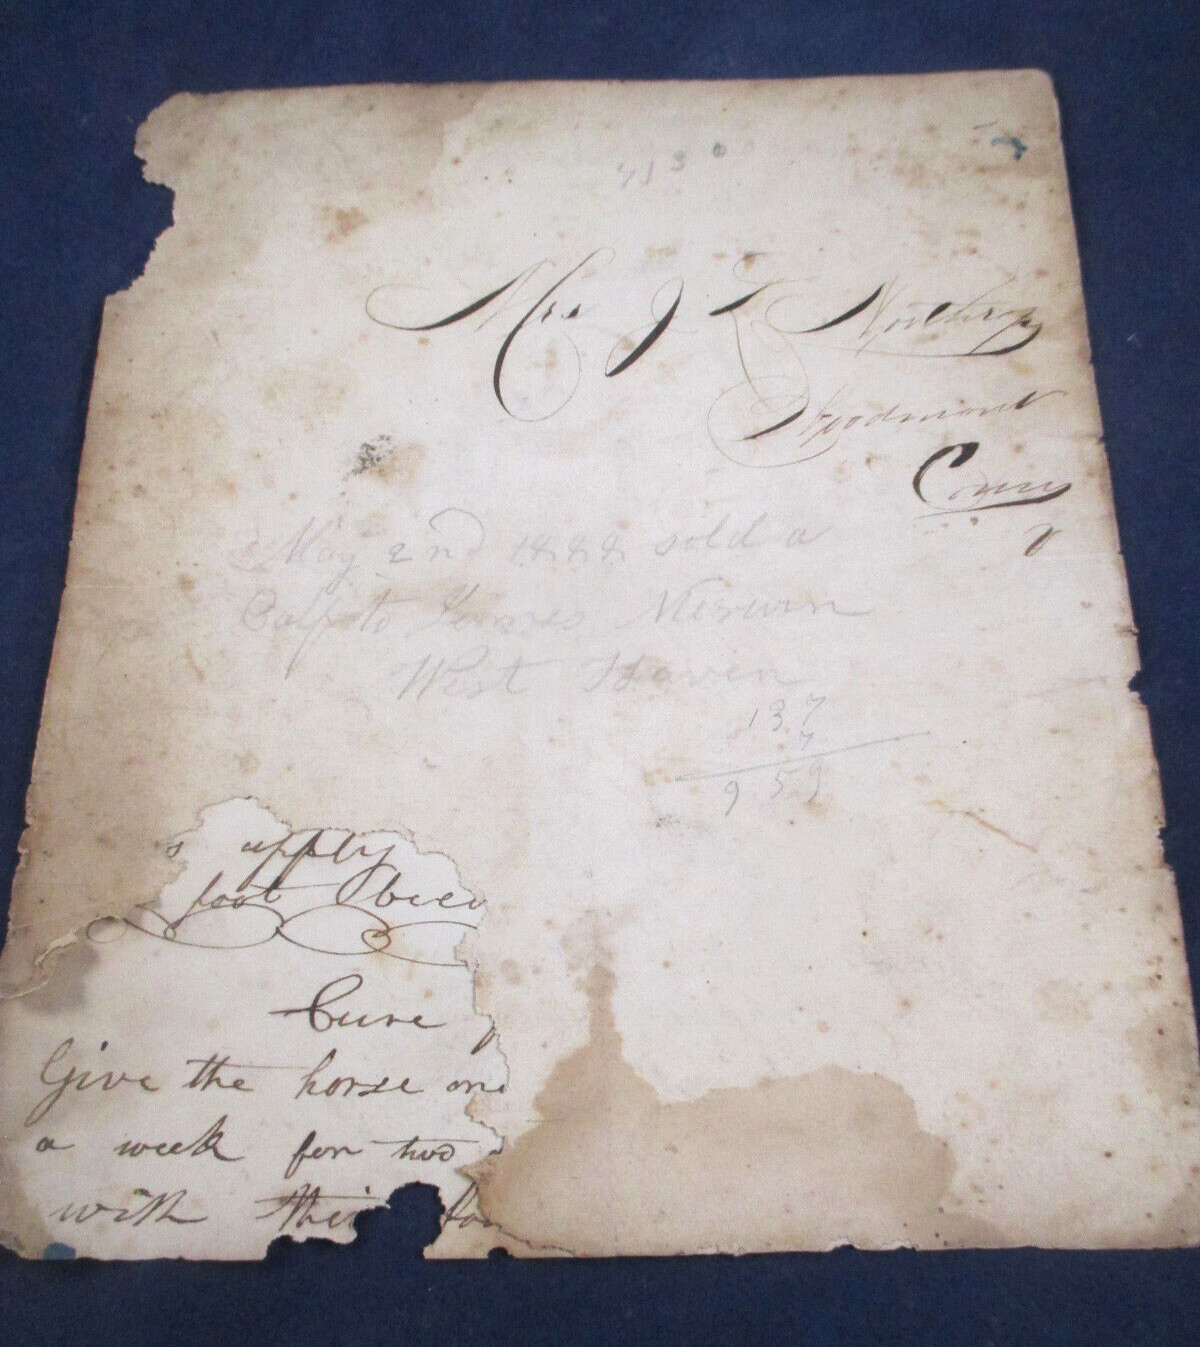 Mrs J L Northrop
Woodmont
Conn
May 2nd 1888 sold a
Calf to James Merwin
West Haven
137
7
959
s apply
foot
Cure
Give the horse one
a week for two
with